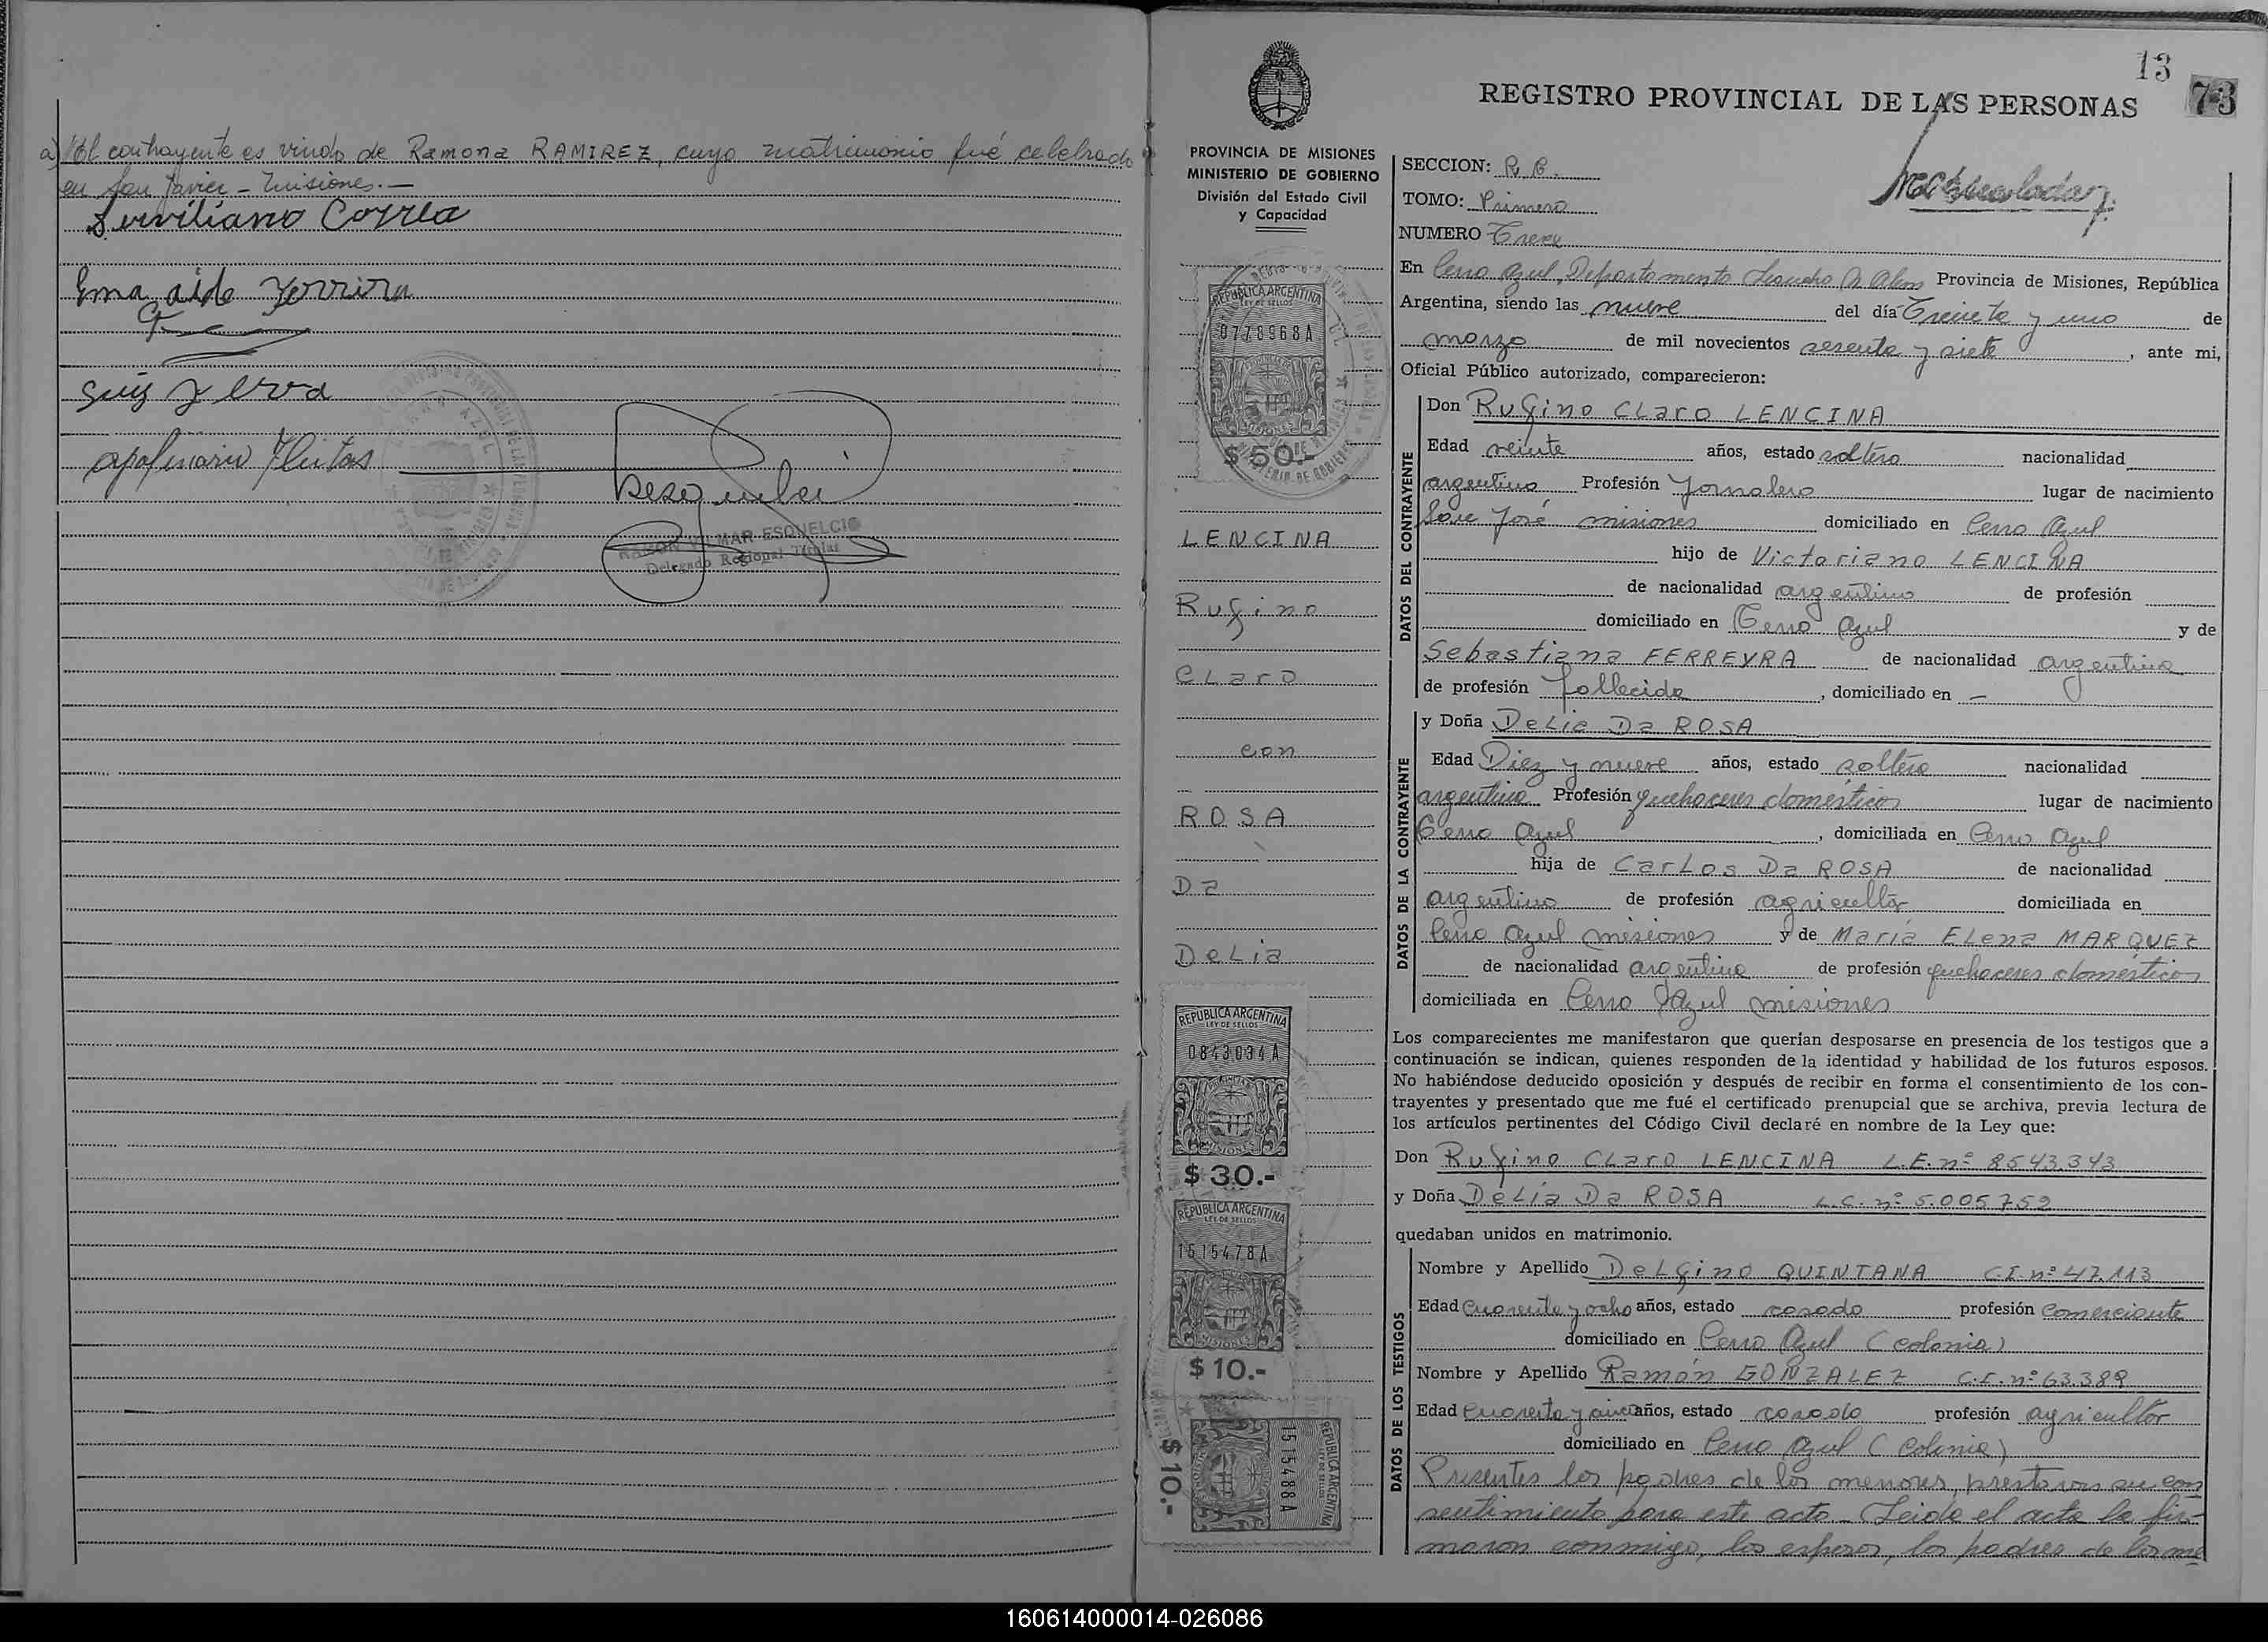 a) El contrayente es viudo de Ramona RAMIREZ, cuyo matrimonio fué celebrado
en San Javier - Misiones. —
Serviliano Correa
Ema aide Ferrira
apolinario Fleitas
RAMON VILMAR ESQUELCIO
Delegado Regional Titular
13
73
REGISTRO PROVINCIAL DE LAS PERSONAS
PROVINCIA DE MISIONES
MINISTERIO DE GOBIERNO
División del Estado Civil
y Capacidad
SECCION: R. C.
TOMO: Primero
NUMERO Trece
En Cerro Azul, Departamento Leandro N Alem Provincia de Misiones, República
Argentina, siendo las nueve del día Treinta y uno de
marzo de mil novecientos sesenta y siete, ante mi,
Oficial Público autorizado, comparecieron:
DATOS DEL CONTRAYENTE
Don Rufino Claro LENCINA
Edad veinte años, estado soltero nacionalidad
argentino Profesión Jornalero lugar de nacimiento
San José misiones domiciliado en Cerro Azul
hijo de Victoriano LENCINA
de nacionalidad argentino de profesión
domiciliado en Cerro Azul y de
Sebastiana FERREYRA de nacionalidad argentina
de profesión fallecida, domiciliado en —
DATOS DE LA CONTRAYENTE
y Doña Delia Da ROSA
Edad Diez y nueve años, estado soltera nacionalidad
argentina Profesión quehaceres domésticos lugar de nacimiento
Cerro Azul, domiciliada en Cerro Azul
hija de Carlos Da ROSA de nacionalidad
argentino de profesión agricultor domiciliada en
Cerro Azul misiones y de María Elena MARQUEZ
de nacionalidad argentina de profesión quehaceres domésticos
domiciliada en Cerro Azul misiones
Los comparecientes me manifestaron que querían desposarse en presencia de los testigos que a
continuación se indican, quienes responden de la identidad y habilidad de los futuros esposos.
No habiéndose deducido oposición y después de recibir en forma el consentimiento de los con-
trayentes y presentado que me fué el certificado prenupcial que se archiva, previa lectura de
los artículos pertinentes del Código Civil declaré en nombre de la Ley que:
Don Rufino Claro LENCINA L.E. nº 8543343
y Doña Delia Da ROSA L.C. nº 5.005.752
quedaban unidos en matrimonio.
DATOS DE LOS TESTIGOS
Nombre y Apellido Delfino QUINTANA C.I. nº 47.113
Edad cuarenta y ocho años, estado casado profesión comerciante
domiciliado en Cerro Azul (colonia)
Nombre y Apellido Ramón GONZALEZ C.I. nº 63.389
Edad cuarenta y cinco años, estado casado profesión agricultor
domiciliado en Cerro Azul (Colonia)
Presentes los padres de los menores, prestaron su con
sentimiento para este acto - Leida el acta la fir-
maron conmigo, los esposos, los padres de los me
REPUBLICA ARGENTINA
LEY DE SELLOS
0778968A
MISIONES
$ 50.-
LENCINA
Rufino
Claro
con
ROSA
Da
Delia
REPUBLICA ARGENTINA
LEY DE SELLOS
0843034A
MISIONES
$ 30.-
REPUBLICA ARGENTINA
LEY DE SELLOS
1515478A
MISIONES
$ 10.-
REPUBLICA ARGENTINA
LEY DE SELLOS
1515488A
$ 10.-
160614000014-026086